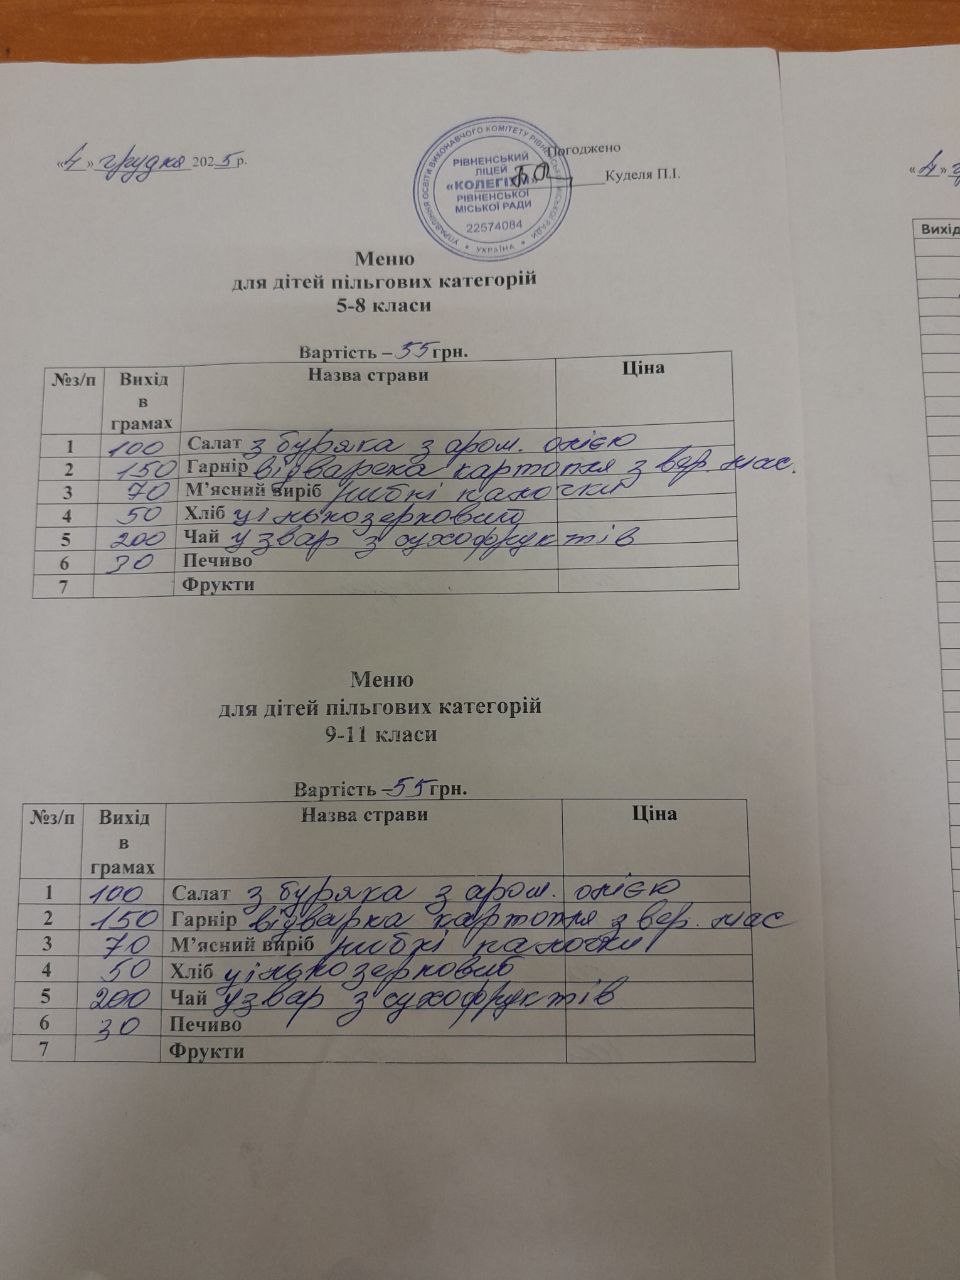 «4» грудня 2025 р.
Погоджено
Куделя П.І.
УПРАВЛІННЯ ОСВІТИ ВИКОНАВЧОГО КОМІТЕТУ РІВНЕНСЬКОЇ МІСЬКОЇ РАДИ * УКРАЇНА *
РІВНЕНСЬКИЙ
ЛІЦЕЙ
«КОЛЕГІУМ»
РІВНЕНСЬКОЇ
МІСЬКОЇ РАДИ
22574084
Меню
для дітей пільгових категорій
5-8 класи
Вартість – 55 грн.
№з/п Вихід в грамах Назва страви Ціна
1 100 Салат з буряка з аром. олією
2 150 Гарнір відварена картопля з вер. мас.
3 70 М’ясний виріб рибні палочки
4 50 Хліб цільнозерновий
5 200 Чай узвар з сухофруктів
6 30 Печиво
7 Фрукти
Меню
для дітей пільгових категорій
9-11 класи
Вартість – 55 грн.
№з/п Вихід в грамах Назва страви Ціна
1 100 Салат з буряка з аром. олією
2 150 Гарнір відварна картопля з вер. мас
3 70 М’ясний виріб рибні палочки
4 50 Хліб цільнозерновий
5 200 Чай узвар з сухофруктів
6 30 Печиво
7 Фрукти
«4»
Вихід